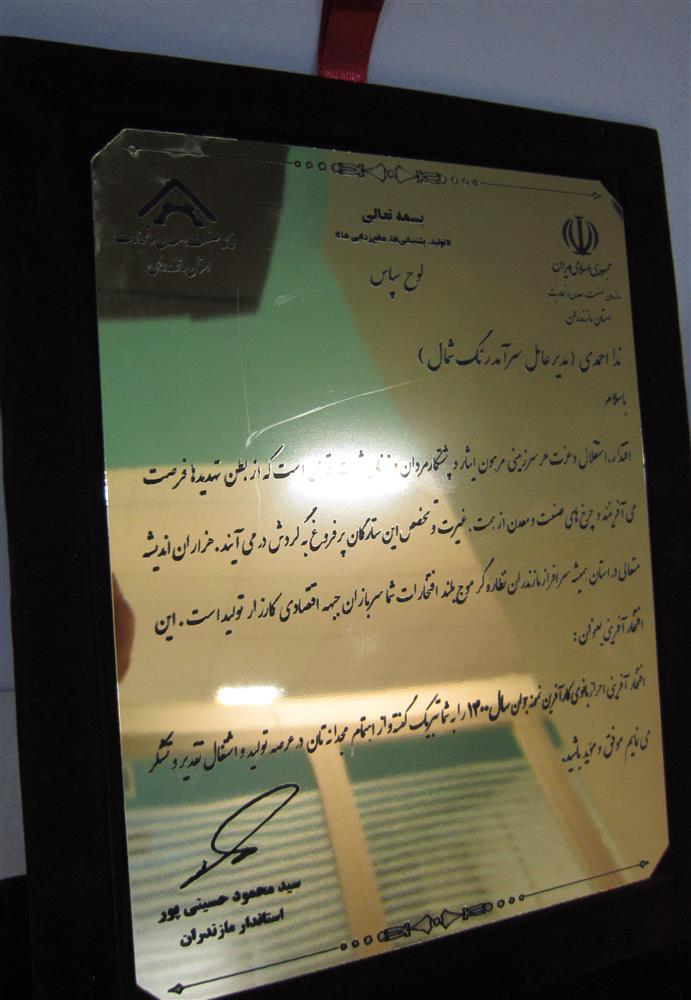 بسمه تعالی
«تولید، پشتیبانی‌ها، مانع‌زدایی‌ها»
لوح سپاس
جمهوری اسلامی ایران
سازمان صنعت، معدن و تجارت
استان مازندران
صنعت، معدن و تجارت
استان مازندران
ندا احمدی (مدیر عامل سرآمد رنگ شمال)
باسلام
اقتدار، استقلال و عزت هر سرزمینی مرهون ایثار و پشتکار مردان و است که از بطن تهدیدها فرصت
می آفرینند و چرخ های صنعت و معدن از همت، غیرت و تخصص این ستارگان پر فروغ به گردش در می آیند. هزاران اندیشه
متعالی در استان همیشه سرافراز مازندران نظاره گر موج بلند افتخارات شما سربازان جبهه اقتصادی کارزار تولید است. این
افتخار آفرینی بعنوان:
افتخار آفرینی احراز بانوی کارآفرین نمونه جوان سال ۱۴۰۰ را به شما تبریک گفته و از اهتمام مجدانه تان در عرصه تولید و اشتغال تقدیر و تشکر
می نمایم موفق و موید باشید.
سید محمود حسینی پور
استاندار مازندران